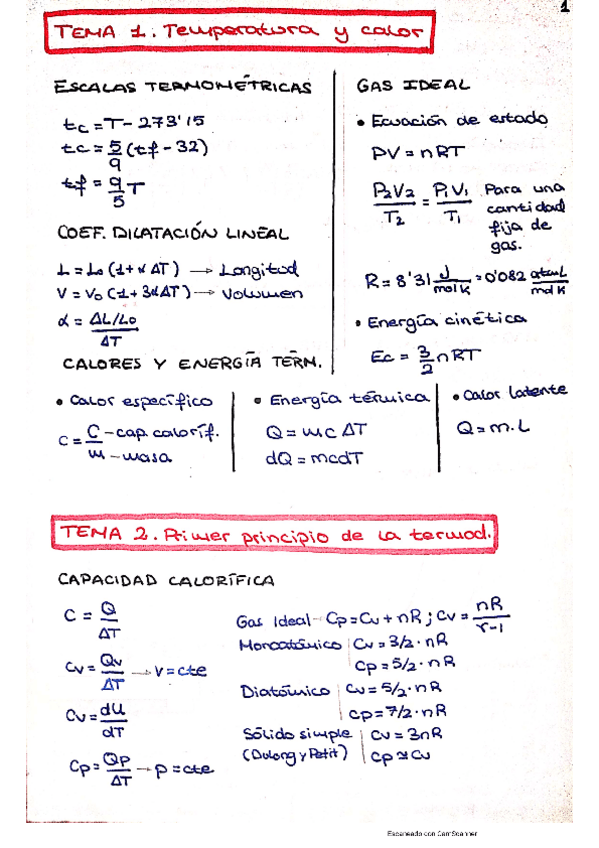 1
TEMA 1. Temperatura y calor
ESCALAS TERMOMÉTRICAS
tc = T - 273'15
tc = 5/9 (tf - 32)
tf = 9/5 T
COEF. DILATACIÓN LINEAL
L = Lo (1 + α ΔT) → Longitud
V = Vo (1 + 3αΔT) → Volumen
α = ΔL/Lo / ΔT
GAS IDEAL
• Ecuación de estado
PV = nRT
P2V2/T2 = P1V1/T1 Para una
cantidad
fija de
gas.
R = 8'31 J/mol K = 0'082 atm L/mol K
• Energía cinética
Ec = 3/2 nRT
CALORES Y ENERGÍA TÉRM.
• Calor específico
c = C - cap. caloríf. / m - masa
• Energía térmica
Q = mc ΔT
dQ = mcdT
• Calor latente
Q = m.L
TEMA 2. Primer principio de la termod.
CAPACIDAD CALORÍFICA
C = Q/ΔT
Cv = Qv/ΔT → V = cte
Cv = dU/dT
Cp = Qp/ΔT → p = cte
Gas Ideal - Cp = Cv + nR ; Cv = nR/γ-1
Monoatómico Cv = 3/2 · nR
Cp = 5/2 · nR
Diatómico Cv = 5/2 · nR
Cp = 7/2 · nR
Sólido simple Cv = 3nR
(Dulong y Petit) Cp ≃ Cv
Escaneado con CamScanner